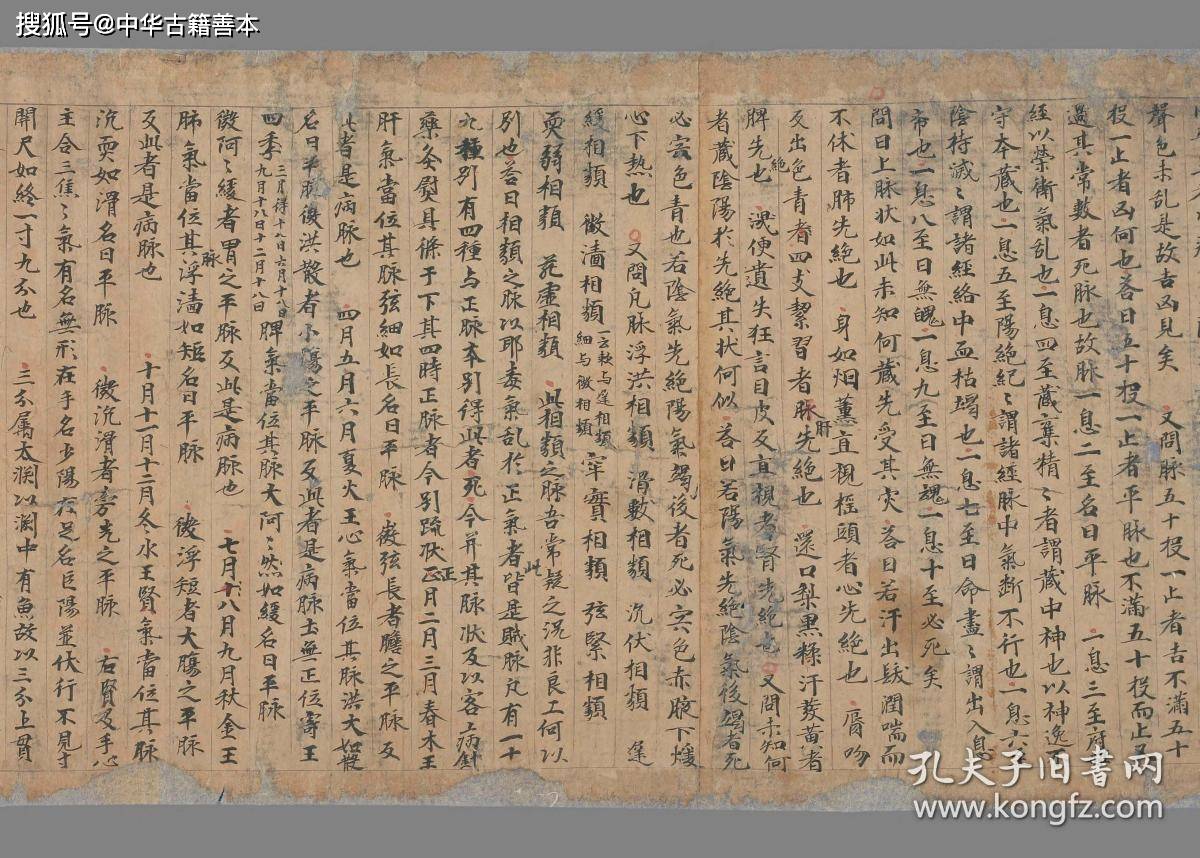 搜狐号@中华古籍善本
聲色未乱是故吉凶見矣 又問脉五十投一止者吉不滿五十
投一止者凶何也荅曰五十投一止者平脉也不滿五十投而止又
過其常數者死脉也故脉一息二至名曰平脉 一息三至
經以榮衛氣乱也一息四至藏棄精〻者謂藏中神也以神逸不
守本藏也一息五至陽絶紀〻謂諸經脉中氣断不行也一息六
陰持滅〻謂諸經絡中血枯竭也一息七至曰命盡〻謂出入息
市也一息八至曰無魄一息九至曰無魂一息十至必死矣
問曰上脉状如此未知何藏先受其灾荅曰若汗出髮潤喘而
不休者肺先絶也 身如烟薰直視摇頭者心先絶也 脣吻
反出色青者四支漐習者肝先絶也 還口梨黒糅汗發黄者
脾先絶也 洩便遺失狂言目皮反直視者腎先絶也 又問未知何
者藏陰陽於先絶其状何似 荅曰若陽氣先絶陰氣後竭者死
必宍色青也若陰氣先絶陽氣竭後者死必宍色赤腋下煖
心下熱也 又問凡脉浮洪相類 滑數相類 沉伏相類 遲
緩相類 微濇相類 一云軟与遲相類細与微相類 牢實相類 弦緊相類
耎弱相類 芤虚相類 此相類之脉吾常疑之況非良工何以
別也荅曰相類之脉以耶毒氣乱於正氣者皆是賊脉凡有一十
九種別有四種与正脉本别得此者死今并其脉状及以客病針
藥灸熨具條于下其四時正脉者今別䟽状 正月二月三月春木王
肝氣當位其脉弦細如長名曰平脉 微弦長者膽之平脉反
此者是病脉也 四月五月六月夏火王心氣當位其脉洪大如散
名曰平脉微洪散者小腸之平脉反此者是病脉土無正位寄王
四季 三月得十八日六月十八日九月十八日十二月十八日 脾氣當位其脉大阿〻然如緩名曰平脉
微阿〻緩者胃之平脉反此是病脉也 七月八月九月秋金王
肺氣當位其脉浮濇如短名曰平脉 微浮短者大腸之平脉
反此者是病脉也 十月十一月十二月冬水王腎氣當位其脉
沉耎如滑名曰平脉 微沉滑者旁光之平脉 右腎及手心
主合三焦〻氣有名無形在手名少陽在足名巨陽並伏行不見寸
開尺如終一寸九分也 三分属太渕以渕中有魚故以三分上貫
孔夫子旧書网
www.kongfz.com